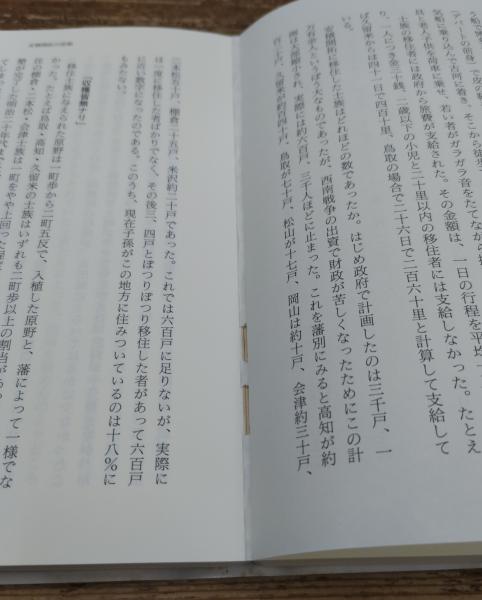 う船
気船に乗り込んで古河に着き、そこから徒
(アパートの前身)で皮の
具と老人子供を荷車に乗せ、若い者がガラガラ音をたてなが
士族の移住者には政府から旅費が支給された。その金額は、一日の行程を平均
り、一人につき金二十銭、二歳以下の小児と二十里以内の移住者には支給しなかった。たとえ
ば久留米からは四十一日で四百十里、鳥取の場合で二十六日で二百六十里と計算して支給して
いる。
安積開拓に移住した士族はどれほどの数であったか。はじめ政府で計画したのは三千戸、一
万有余人というぼう大なものであったが、西南戦争の出資で財政が苦しくなったためにこの計
画は大部縮小され、実際には約六百戸、三千人ほどに止まった。これを藩別にみると高知が約
百六戸、久留米が約百四十戸、鳥取が七十戸、松山が十七戸、岡山は約十戸、会津約三十戸、
二本松五十八戸、棚倉二十五戸、米沢約二十戸であった。これでは六百戸に足りないが、実際に
は一度に移住した者ばかりでなく、その後三、四戸とぽつりぽつり移住した者があって六百戸
に近い数字になったのである。このうち、現在子孫がこの地方に住みついているのは十八%に
もみたない。
「収穫皆無ナリ」
移住士族に与えられた原野は一町歩から二町五反で、入植した原野と、藩によって一様でな
かった。たとえば鳥取・高知・久留米の士族はいずれも二町歩以上の割当があ
在の棚倉・二本松・会津士族は一町をやや上回った程
墾が完了した明治二十年代まで